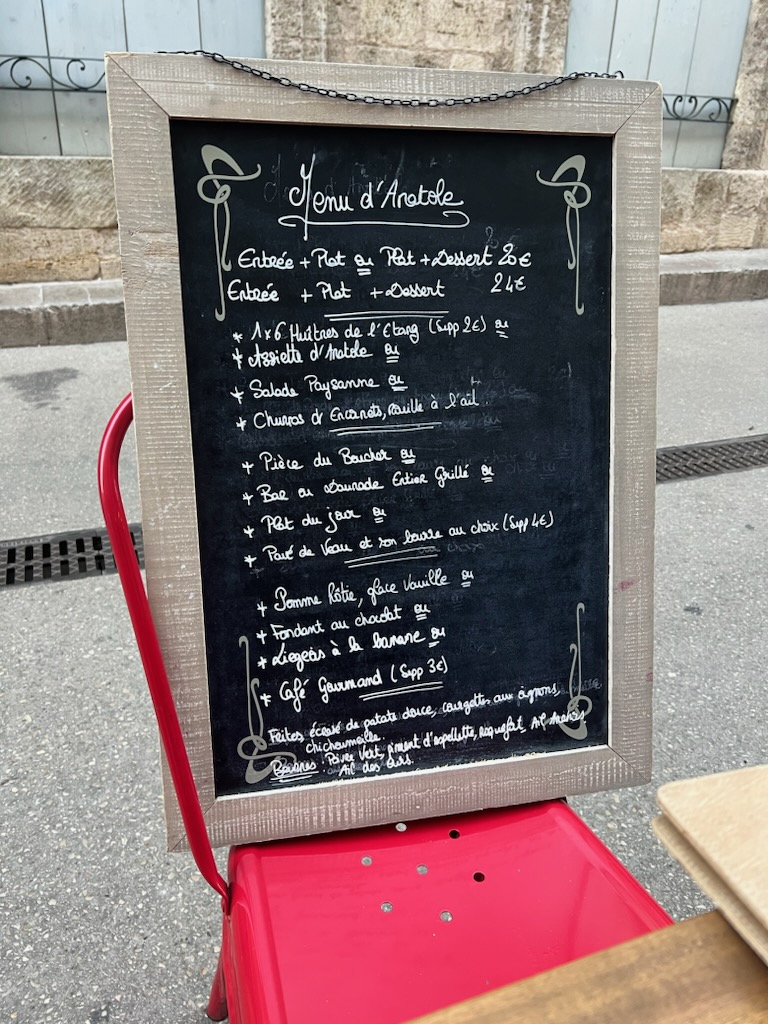 Menu d'Anatole
Entrée + Plat ou Plat + Dessert 20€
Entrée + Plat + Dessert 24€
* 1x6 Huîtres de l'Etang (Supp 2€) ou
* Assiette d'Anatole ou
* Salade Paysanne ou
* Churros d'Encornets, rouille à l'ail.
* Pièce du Boucher ou
* Bar ou Daurade Entier Grillé ou
* Plat du jour ou
* Pavé de Veau et son beurre au choix (Supp 4€)
* Pomme rôtie, glace Vanille ou
* Fondant au chocolat ou
* Liegeois à la banane ou
* Café Gourmand (Supp 3€)
Frites écrasé de patate douce, courgettes aux oignons,
chichoumeille.
Beurres: Poivre Vert, piment d'espellette, roquefort, Ail
Ail des ours.